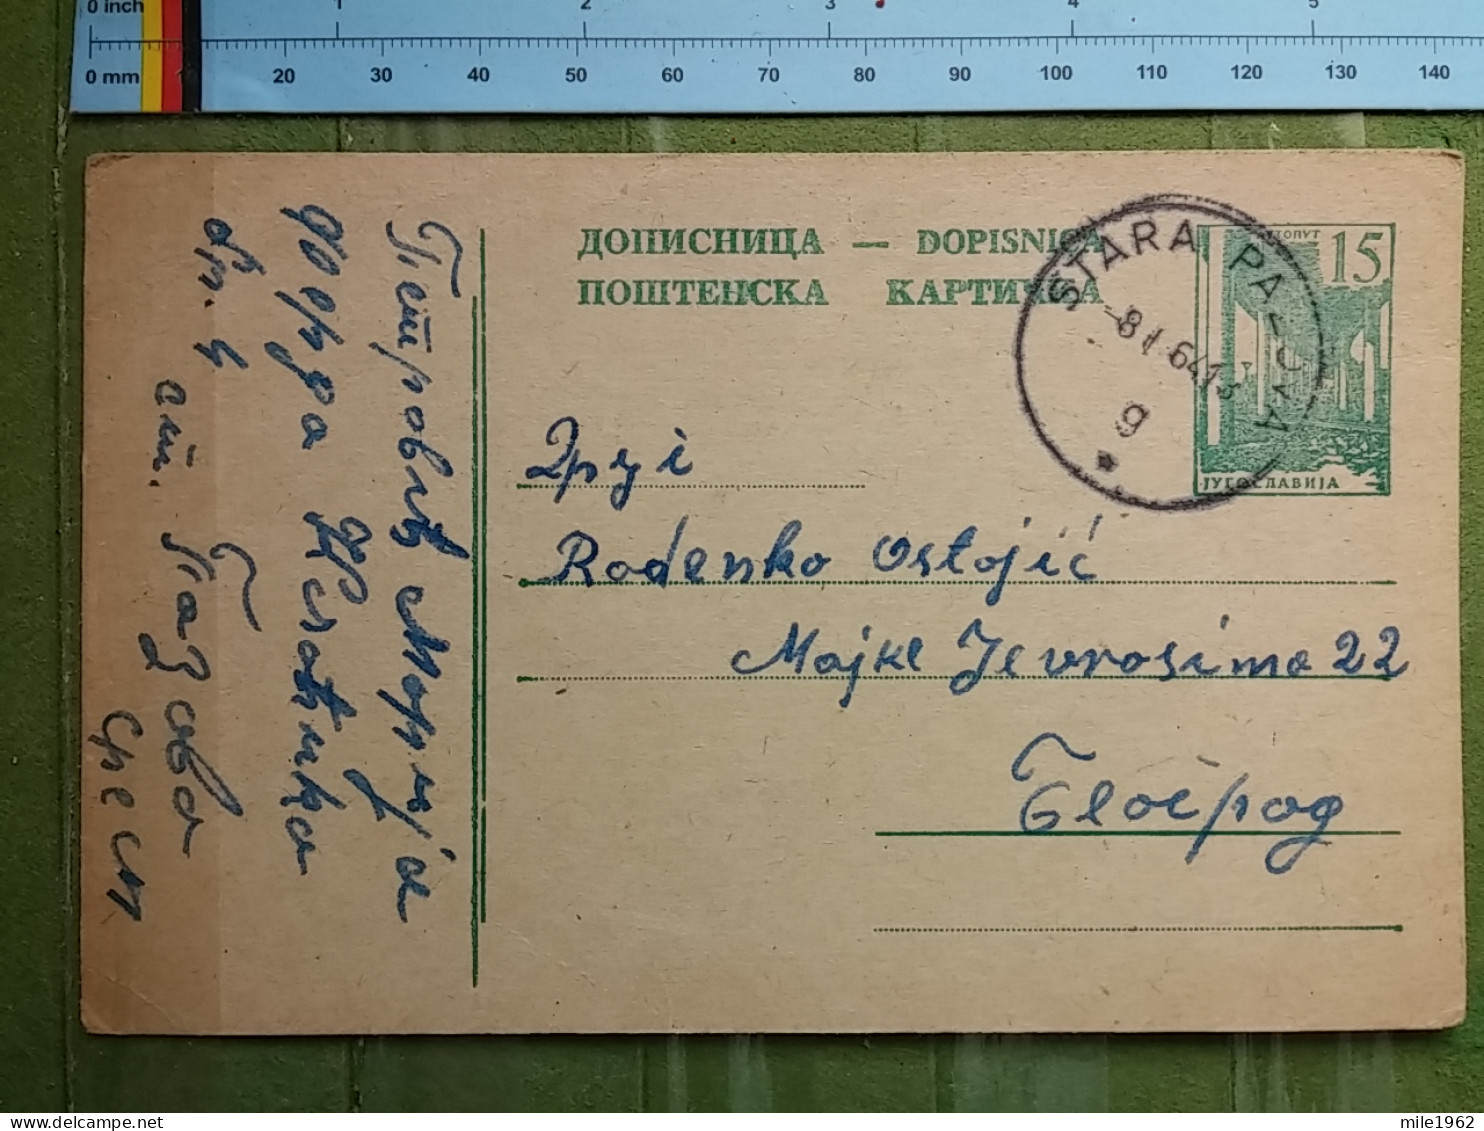 0 inch 1 2 3 4 5
0 mm 20 30 40 50 60 70 80 90 100 110 120 130 140
ДОПИСНИЦА — DOPISNICA
ПОШТЕНСКА КАРТИЧКА
15
ЈУГОСЛАВИЈА
STARA PAZOVA
-8 64
g
Друг
Radenko Ostojić
Majke Jevrosime 22
Београд
Петровић Марија
Ђорђа
бр. 4
ст. Пазова
Срем
mile1962